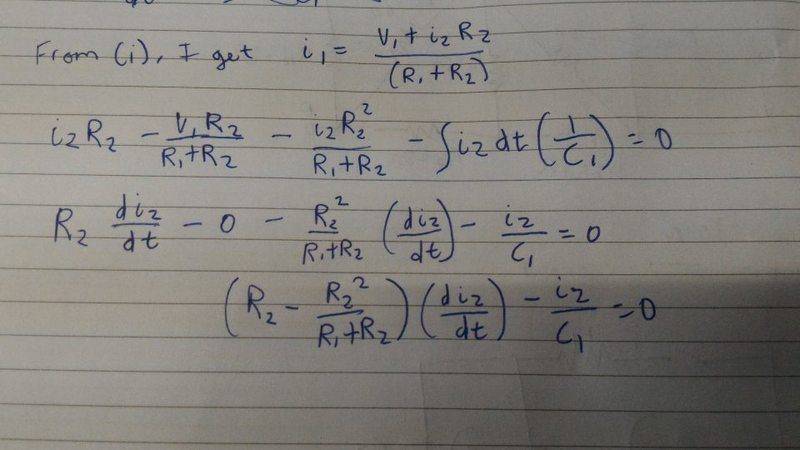 From (i), I get i₁ = (V₁ + i₂ R₂) / (R₁ + R₂)
i₂R₂ − V₁R₂ / (R₁+R₂) − i₂R₂² / (R₁+R₂) − ∫i₂ dt (1/C₁) = 0
R₂ di₂/dt − 0 − R₂² / (R₁+R₂) (di₂/dt) − i₂/C₁ = 0
(R₂ − R₂² / (R₁+R₂)) (di₂/dt) − i₂/C₁ = 0